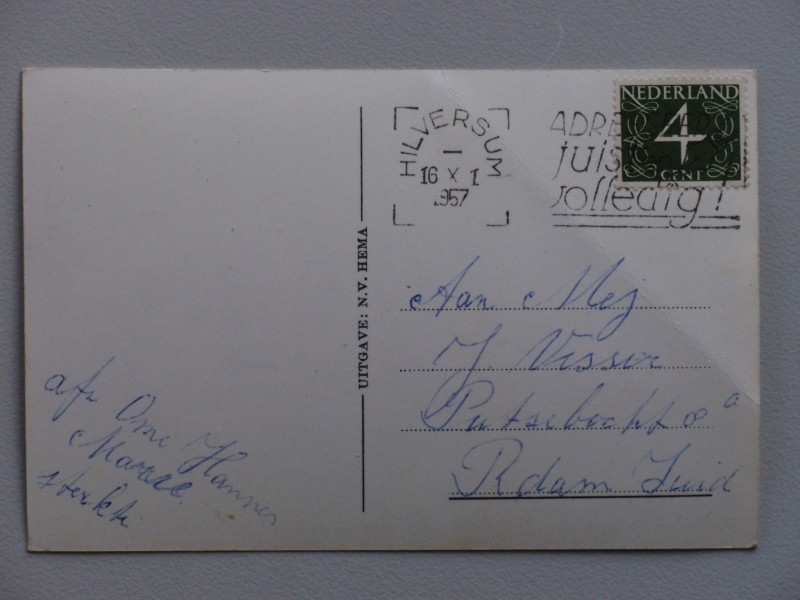 HILVERSUM
16 X 1
1957
ADRES
juis
volledig!
NEDERLAND
4
CENT
UITGAVE: N.V. HEMA
Aan Mej
J. Visser
8a
Rdam Zuid
afz Ome Hannes
sterkte